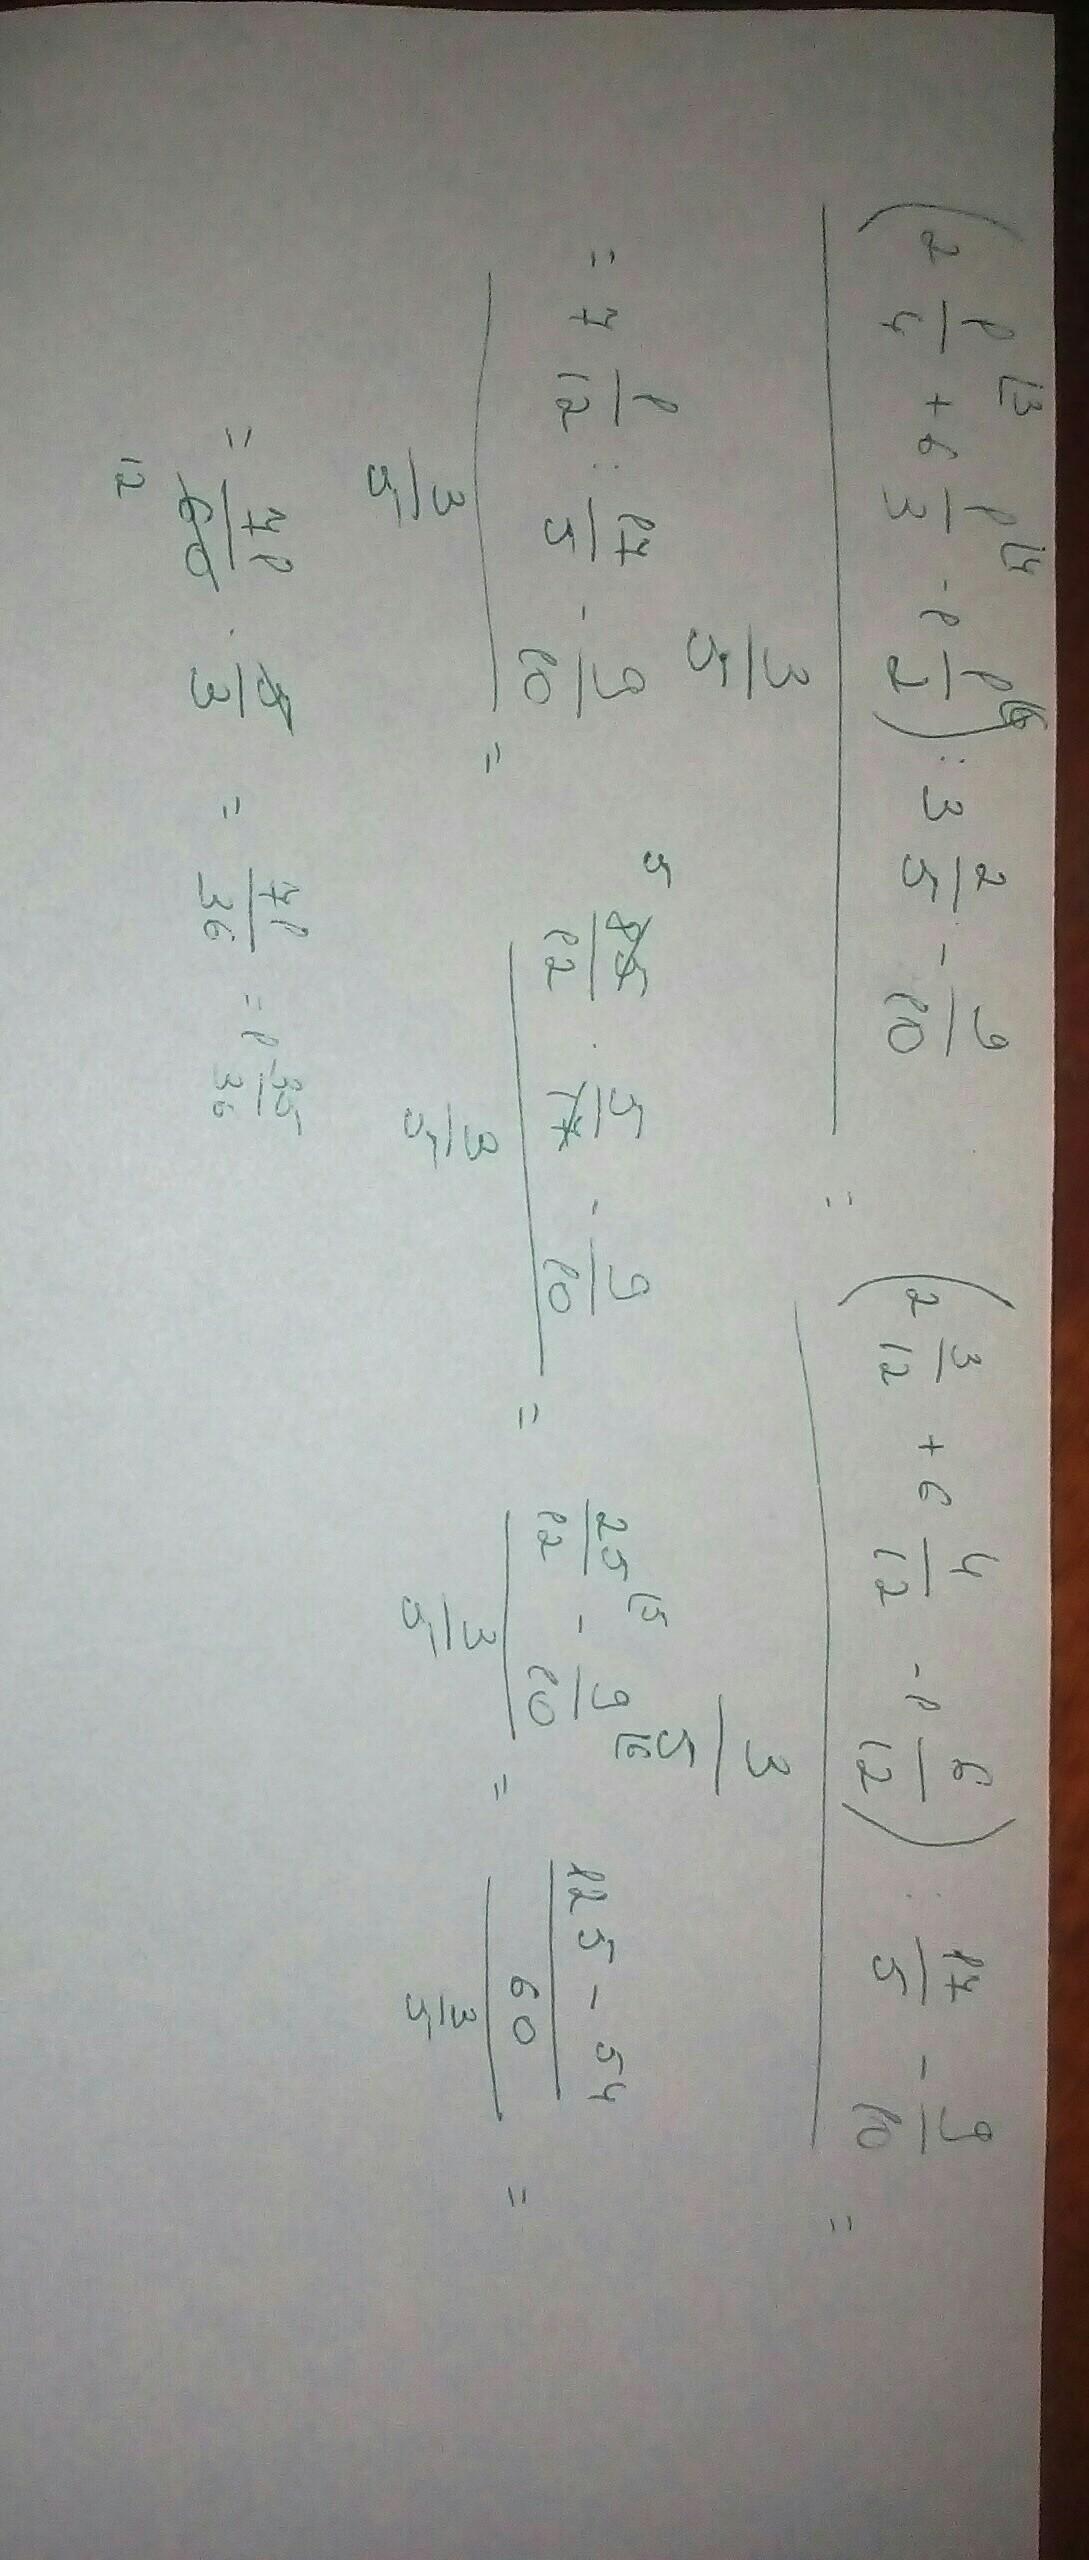 (2 1/4 ⌊3 + 6 1/3 ⌊4 - 1 1/2 ⌊6) : 3 2/5 - 9/10 / 3/5 = (2 3/12 + 6 4/12 - 1 6/12) : 17/5 - 9/10 / 3/5 =
= 7 1/12 : 17/5 - 9/10 / 3/5 = 5 85/12 · 5/17 - 9/10 / 3/5 = 25 ⌊5/12 - 9 ⌊6/10 / 3/5 = 125 - 54 / 60 / 3/5 =
= 71/60 12 · 5/3 = 71/36 = 1 35/36